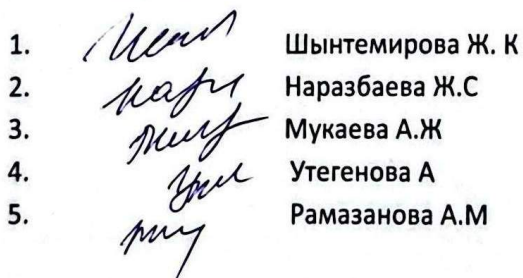 1. Шынтемирова Ж. К
2. Наразбаева Ж.С
3. Мукаева А.Ж
4. Утегенова А
5. Рамазанова А.М